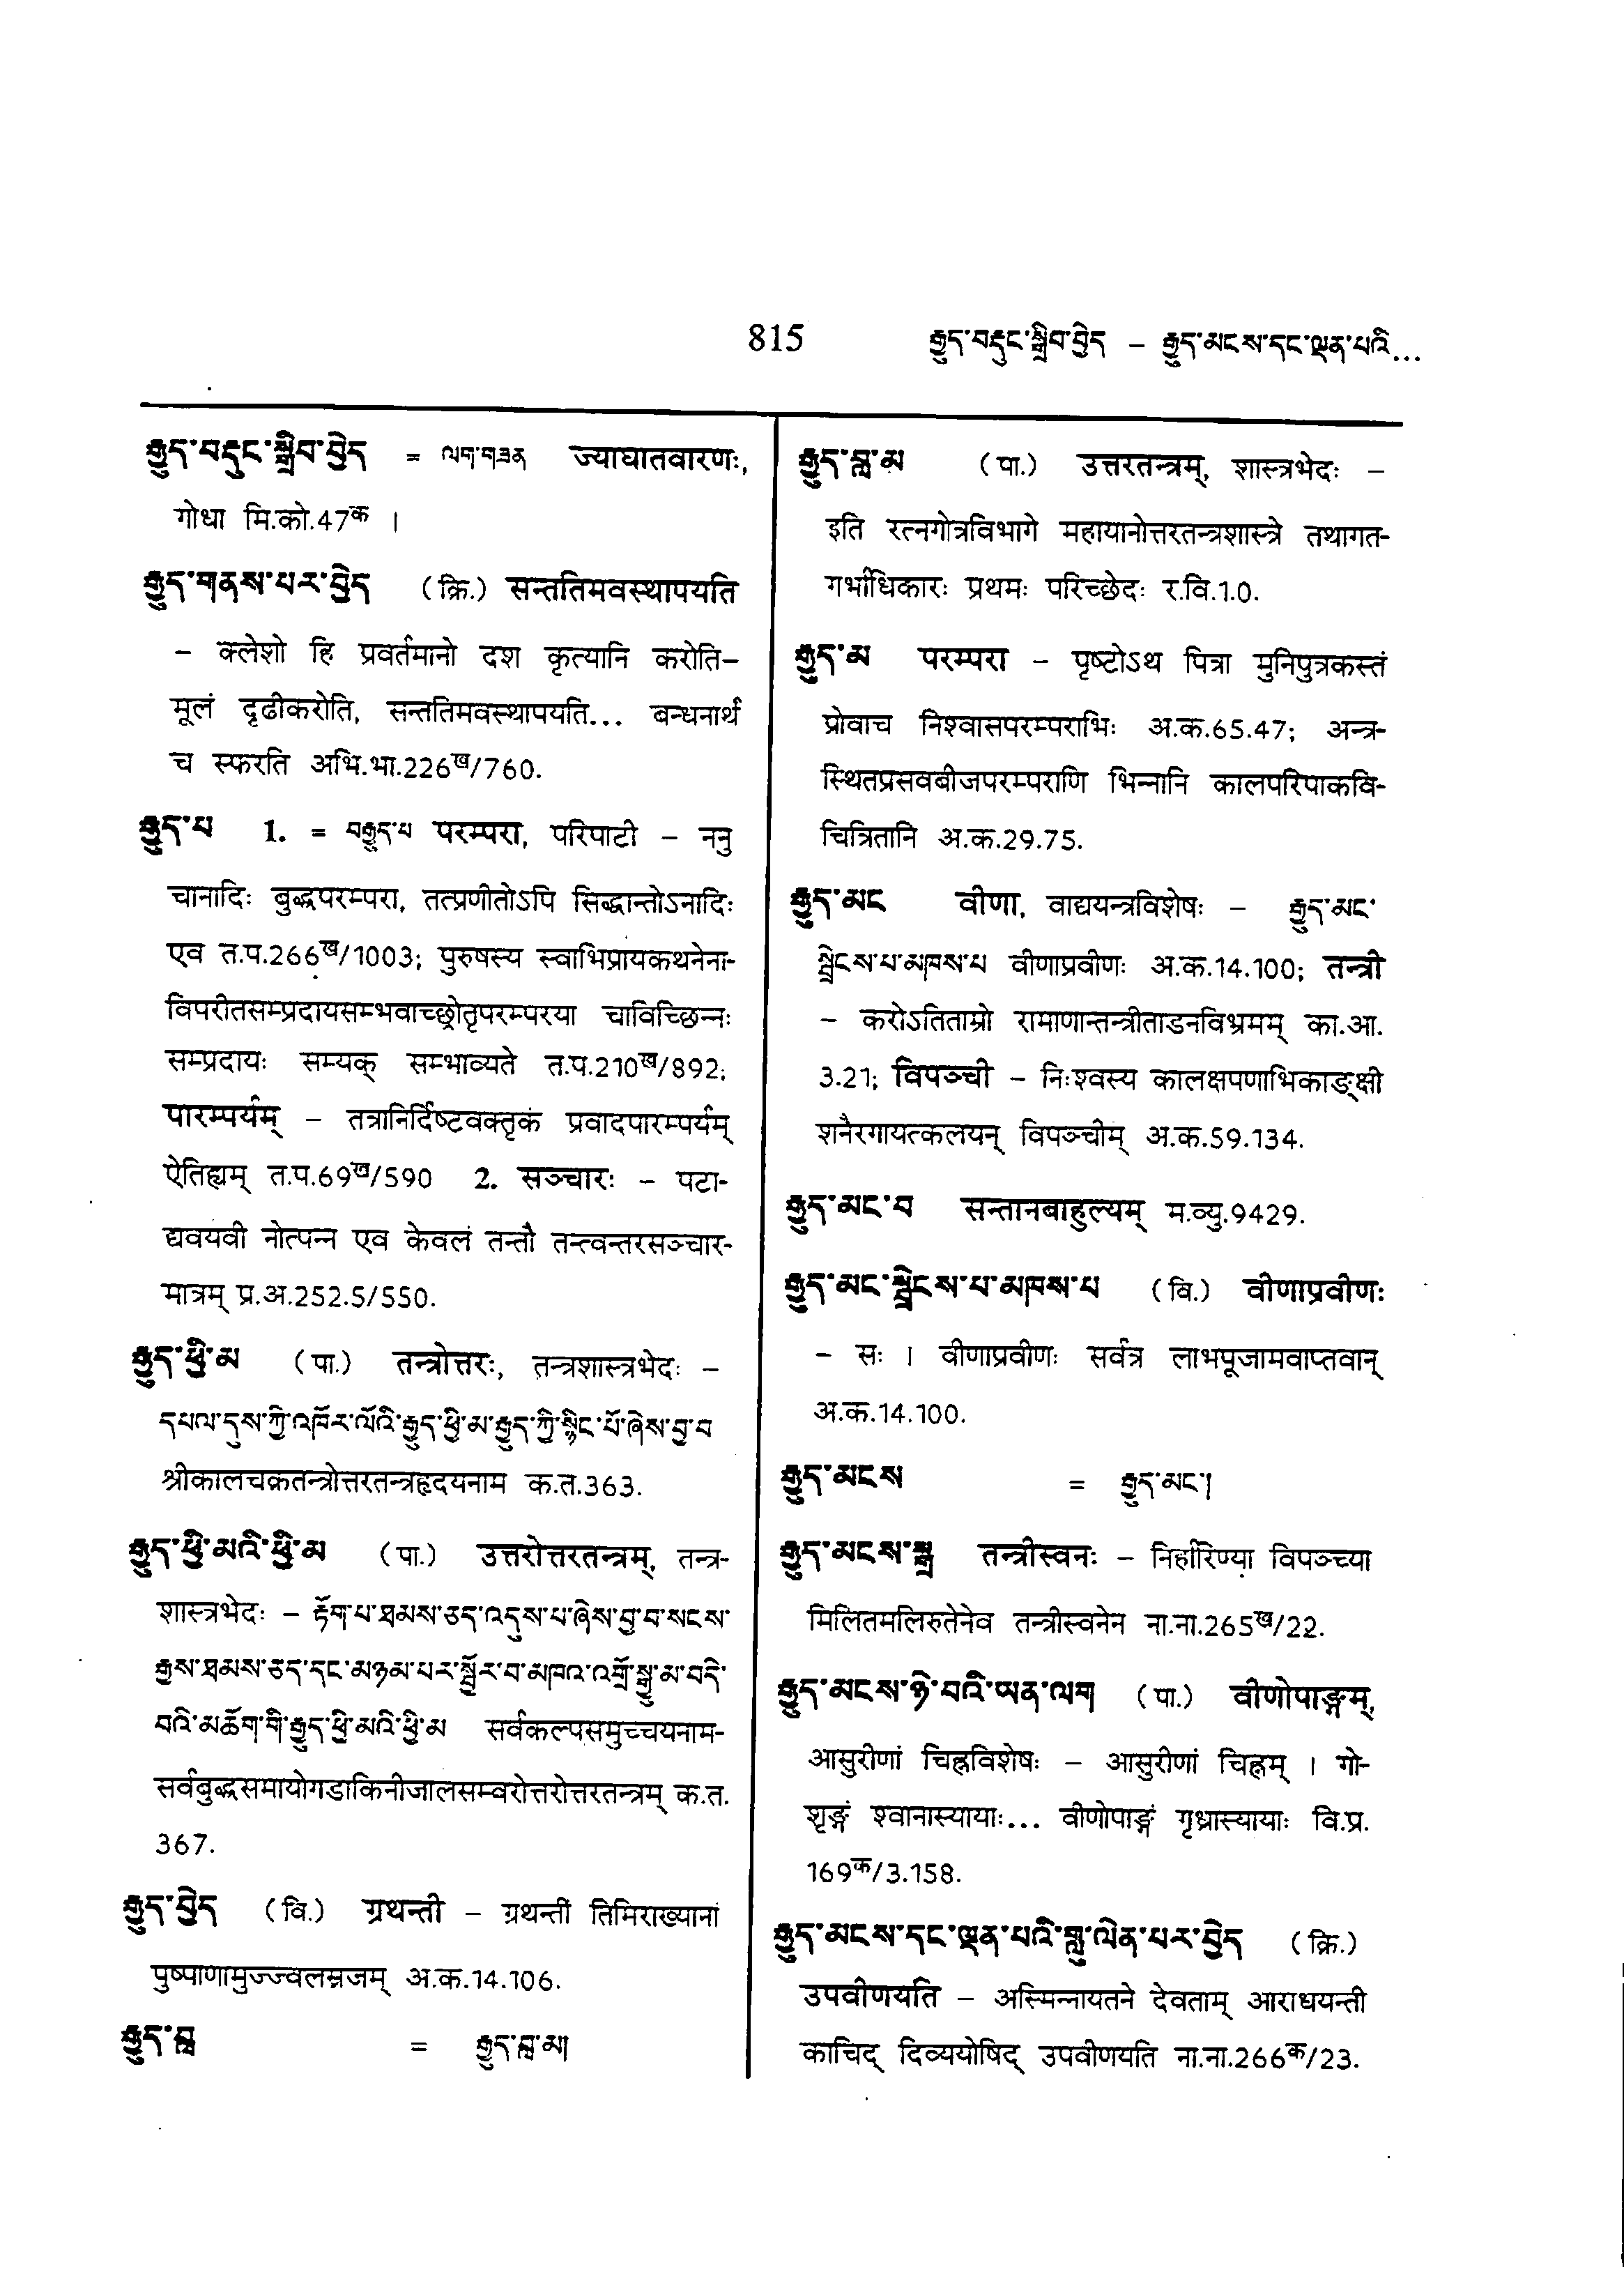 815 རྒྱུད་བདུང་སྒྲིབ་བྱེད – རྒྱུད་མངས་དང་ལྡན་པའི...
རྒྱུད་བདུང་སྒྲིབ་བྱེད = ལག་གཟན ज्याघातवारणः,
गोधा मि.को.47क ।
རྒྱུད་གནས་པར་བྱེད (क्रि.) सन्ततिमवस्थापयति
– क्लेशो हि प्रवर्तमानो दश कृत्यानि करोति–
मूलं दृढीकरोति, सन्ततिमवस्थापयति... बन्धनार्थं
च स्फरति अभि.भा.226ख/760.
རྒྱུད་པ 1. = བརྒྱུད་པ परम्परा, परिपाटी – ननु
चानादिः बुद्धपरम्परा, तत्प्रणीतोऽपि सिद्धान्तोऽनादिः
एव त.प.266ख/1003; पुरुषस्य स्वाभिप्रायकथनेना-
विपरीतसम्प्रदायसम्भवाच्छ्रोतृपरम्परया चाविच्छिन्नः
सम्प्रदायः सम्यक् सम्भाव्यते त.प.210ख/892;
पारम्पर्यम् – तत्रानिर्दिष्टवक्तृकं प्रवादपारम्पर्यम्
ऐतिह्यम् त.प.69ख/590 2. सञ्चारः – पटा-
द्यवयवी नोत्पन्न एव केवलं तन्तौ तन्त्वन्तरसञ्चार-
मात्रम् प्र.अ.252.5/550.
རྒྱུད་ཕྱི་མ (पा.) तन्त्रोत्तरः, तन्त्रशास्त्रभेदः –
དཔལ་དུས་ཀྱི་འཁོར་ལོའི་རྒྱུད་ཕྱི་མ་རྒྱུད་ཀྱི་སྙིང་པོ་ཞེས་བྱ་བ
श्रीकालचक्रतन्त्रोत्तरतन्त्रहृदयनाम क.त.363.
རྒྱུད་ཕྱི་མའི་ཕྱི་མ (पा.) उत्तरोत्तरतन्त्रम्, तन्त्र-
शास्त्रभेदः – རྟོག་པ་ཐམས་ཅད་འདུས་པ་ཞེས་བྱ་བ་སངས་
རྒྱས་ཐམས་ཅད་དང་མཉམ་པར་སྦྱོར་བ་མཁའ་འགྲོ་སྒྱུ་མ་བདེ་
བའི་མཆོག་གི་རྒྱུད་ཕྱི་མའི་ཕྱི་མ सर्वकल्पसमुच्चयनाम-
सर्वबुद्धसमायोगडाकिनीजालसम्वरोत्तरोत्तरतन्त्रम् क.त.
367.
རྒྱུད་བྱེད (वि.) ग्रथन्ती – ग्रथन्तीं तिमिराख्यानां
पुष्पाणामुज्ज्वलस्रजम् अ.क.14.106.
རྒྱུད་བླ = རྒྱུད་བླ་མ།
རྒྱུད་བླ་མ (पा.) उत्तरतन्त्रम्, शास्त्रभेदः –
इति रत्नगोत्रविभागे महायानोत्तरतन्त्रशास्त्रे तथागत-
गर्भाधिकारः प्रथमः परिच्छेदः र.वि.1.0.
རྒྱུད་མ परम्परा – पृष्टोऽथ पित्रा मुनिपुत्रकस्तं
प्रोवाच निश्वासपरम्पराभिः अ.क.65.47; अन्त्र-
स्थितप्रसवबीजपरम्पराणि भिन्नानि कालपरिपाकवि-
चित्रितानि अ.क.29.75.
རྒྱུད་མང वीणा, वाद्ययन्त्रविशेषः – རྒྱུད་མང་
སྒྲེངས་པ་མཁས་པ वीणाप्रवीणः अ.क.14.100; तन्त्री
– करोऽतिताम्रो रामाणान्तन्त्रीताडनविभ्रमम् का.आ.
3.21; विपञ्ची – निःश्वस्य कालक्षपणाभिकाङ्क्षी
शनैरगायत्कलयन् विपञ्चीम् अ.क.59.134.
རྒྱུད་མང་བ सन्तानबाहुल्यम् म.व्यु.9429.
རྒྱུད་མང་སྒྲེངས་པ་མཁས་པ (वि.) वीणाप्रवीणः
– सः । वीणाप्रवीणः सर्वत्र लाभपूजामवाप्तवान्
अ.क.14.100.
རྒྱུད་མངས = རྒྱུད་མང་།
རྒྱུད་མངས་སྒྲ तन्त्रीस्वनः – निर्हारिण्या विपञ्च्या
मिलितमलिरुतेनेव तन्त्रीस्वनेन ना.ना.265ख/22.
རྒྱུད་མངས་ཉེ་བའི་ཡན་ལག (पा.) वीणोपाङ्गम्,
आसुरीणां चिह्नविशेषः – आसुरीणां चिह्नम् । गो-
शृङ्गं श्वानास्यायाः... वीणोपाङ्गं गृध्रास्यायाः वि.प्र.
169क/3.158.
རྒྱུད་མངས་དང་ལྡན་པའི་གླུ་ལེན་པར་བྱེད (क्रि.)
उपवीणयति – अस्मिन्नायतने देवताम् आराधयन्ती
काचिद् दिव्ययोषिद् उपवीणयति ना.ना.266क/23.